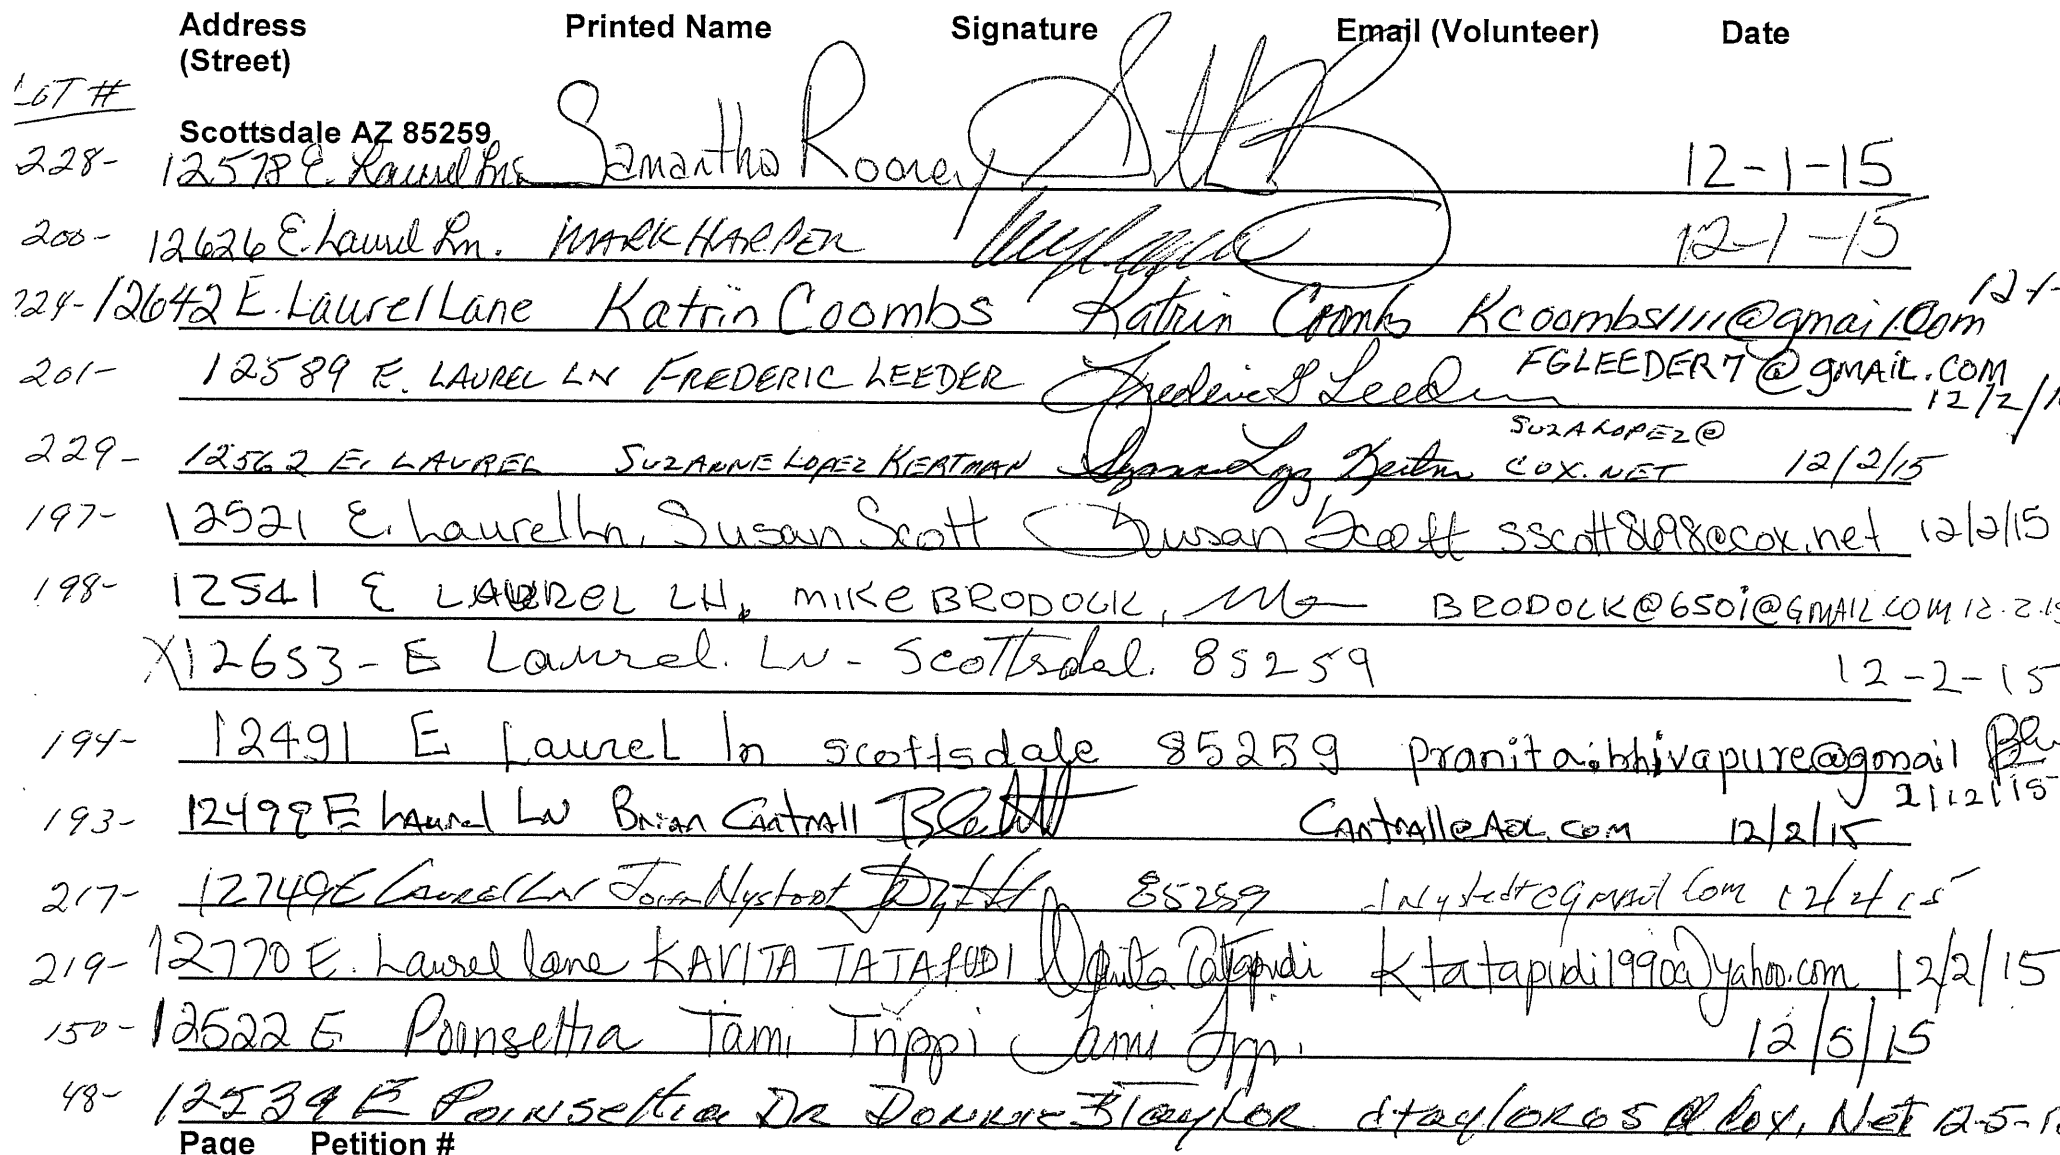 Address Printed Name Signature Email (Volunteer) Date
(Street)
LOT #
Scottsdale AZ 85259
228- 12578 E. Laurel Ln Samantha Rooney 12-1-15
200- 12626 E. Laurel Ln. MARK HARPER 12-1-15
224- 12642 E. Laurel Lane Katrin Coombs Katrin Coombs Kcoombs1111@gmail.com 12-1-
201- 12589 E. LAUREL LN FREDERIC LEEDER Frederic G Leeder FGLEEDER7@GMAIL.COM 12/2/1
229- 12562 E. LAUREL SUZANNE LOPEZ KERTMAN SUZALOPEZ@ COX.NET 12/2/15
197- 12521 E. Laurel Ln, Susan Scott Susan Scott sscott8698@cox.net 12/2/15
198- 12541 E LAUREL LN, MIKE BRODOCK, BRODOCK@6501@GMAIL.COM 12.2.15
X12653- E Laurel. LN - Scottsdal. 85259 12-2-15
194- 12491 E Laurel ln scottsdale 85259 pranita.bhivapure@gmail 2/12/15
193- 12499 E Laurel LN Brian Cantrall Cantrall@AOL.com 12/2/15
217- 12749 E Laurel LN 85259 12/2/15
219- 12770 E. Laurel lane KAVITA TATAPUDI Kavita Tatapudi Ktatapudi1990@yahoo.com 12/2/15
150- 12522 E Poinsettia Tami Trippi Tami Trippi 12/5/15
48- 12539 E Poinsettia DR DONNIE TAYLOR dtaylor05@cox.Net 12-5-1
Page Petition #